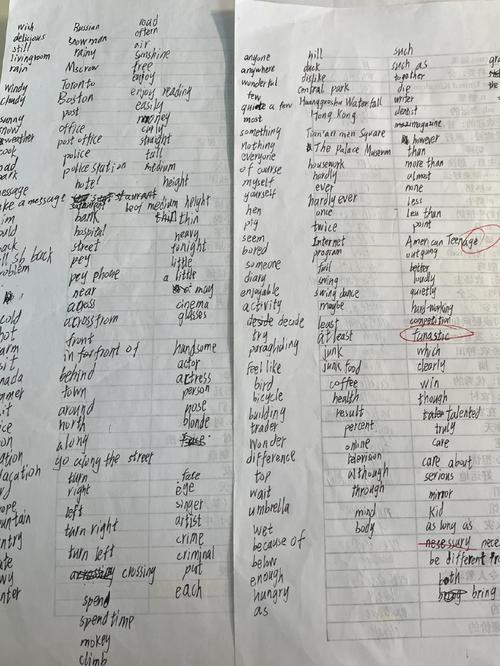 wish
delicious
still
livingroom
rain
windy
cloudy
sunny
weather
cook
message
problem
cold
Russian
snowman
rainy
Mscrow
Toronto
Boston
post
office
post office
police
police station
hotel
bank
hospital
street
pey
pey phone
near
across
across from
front
in farfront of
behind
town
around
north
along
go along the street
turn
right
left
turn right
turn left
crossing
spend
spend time
mokey
climb
road
oftern
air
sunshine
free
enjoy
enjoy reading
easily
money
curly
straight
tall
medium
height
of medium height
thin
heavy
tonight
little
a little
may
cinema
glasses
handsome
actor
actress
person
nose
blonde
face
eye
singer
artist
crime
criminal
put
each
anyone
anywhere
wonderful
few
quite a few
most
something
nothing
everyone
of course
myself
yourself
hen
pig
seem
bored
someone
diary
enjoyable
activity
decide
try
paragliding
feel like
bird
bicycle
building
trader
wonder
difference
top
wait
umbrella
wet
because of
below
enough
hungry
as
hill
duck
dislike
central park
Huangguoshu Waterfall
Hong Kong
Tian'anmen Square
The Palace Museum
housework
hardly
ever
hardly ever
once
twice
Internet
program
full
swing
swing dance
maybe
least
at least
junk
junk food
coffee
health
result
percent
online
television
although
through
mind
body
such
such as
together
die
writer
dentist
magazine
however
than
more than
almost
none
less
less than
point
American Teenage
outgoing
better
loudly
quietly
hard-working
competition
fanastic
which
clearly
win
though
talented
truly
care
care about
serious
mirror
kid
as long as
necessury
be different
both
bring